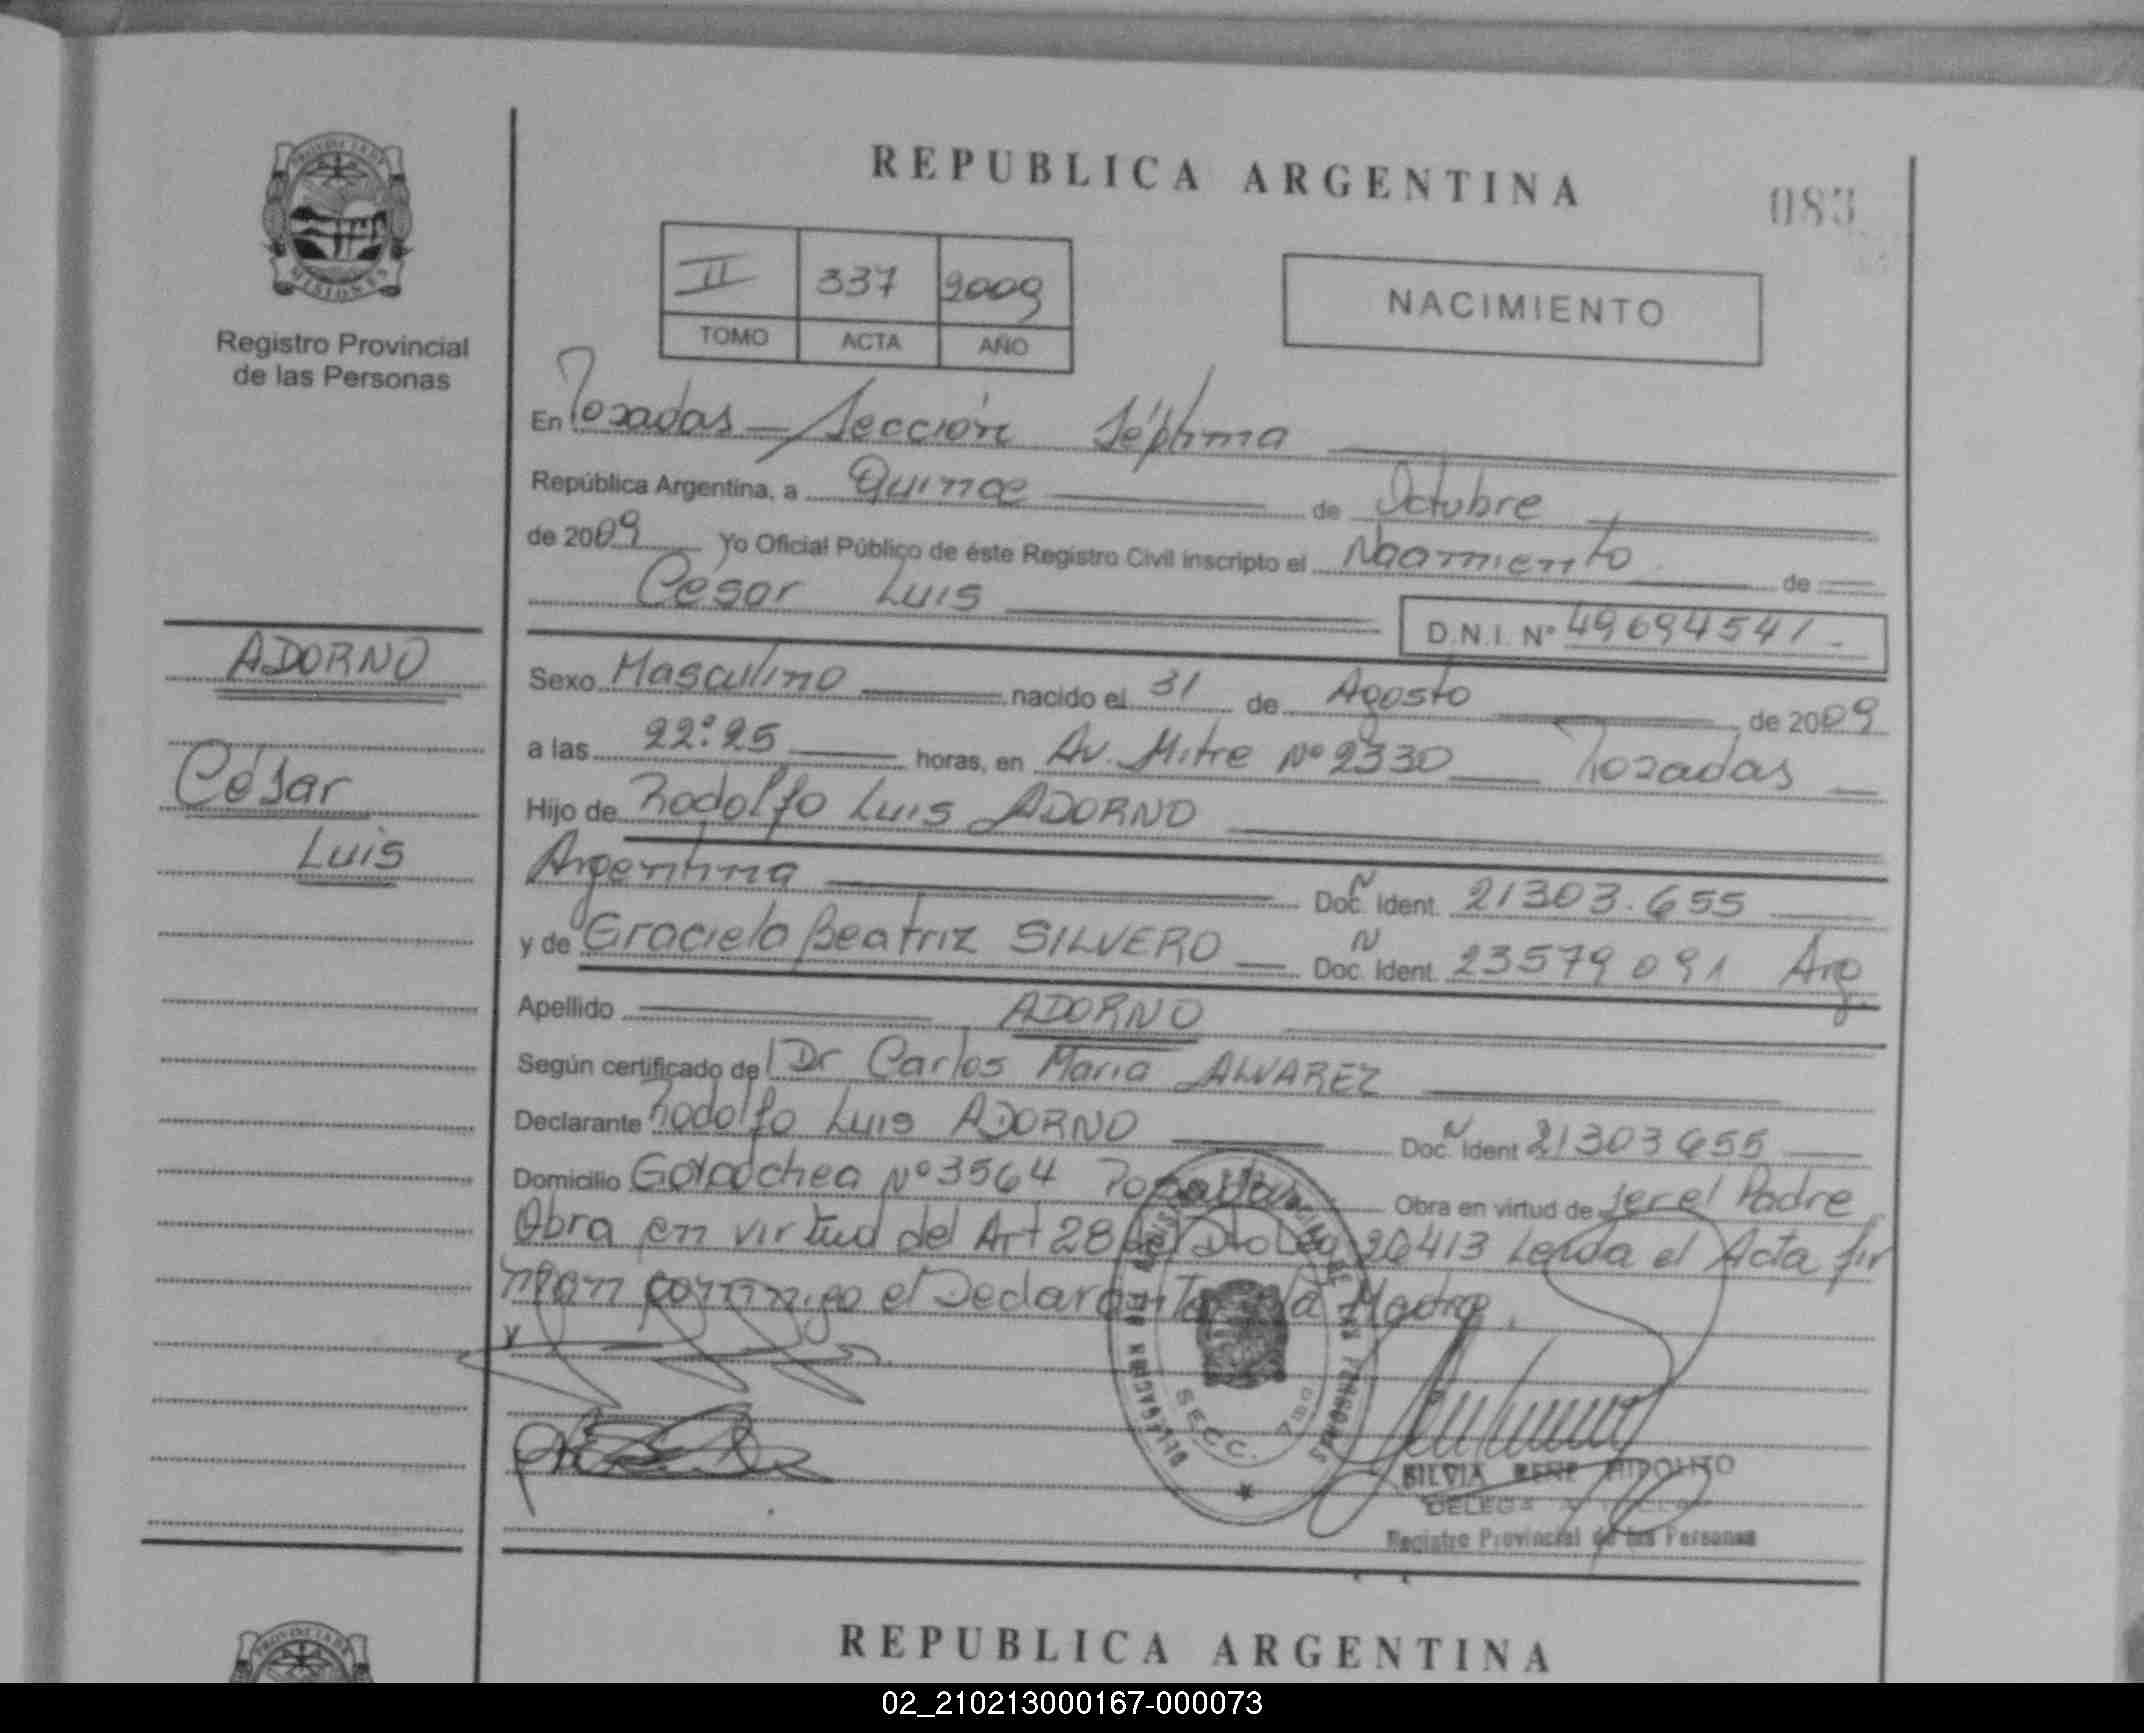 REPUBLICA ARGENTINA
083
PROVINCIA DE
MISIONES
Registro Provincial
de las Personas
II 337 2009
TOMO ACTA AÑO
NACIMIENTO
En Posadas - Sección Séptima
República Argentina, a Quince de Octubre
de 2009 Yo Oficial Público de éste Registro Civil inscripto el Nacimiento de
César Luis
D.N.I. Nº 49694541-
ADORNO
César
Luis
Sexo Masculino nacido el 31 de Agosto de 2009
a las 22:25 horas, en Av. Mitre Nº 2330 Posadas
Hijo de Rodolfo Luis ADORNO
Argentina Doc. Ident. N 21303.655
y de Graciela Beatriz SILVERO Doc. Ident. N 23579091 Arg
Apellido ADORNO
Según certificado de Dr Carlos Maria ALVAREZ
Declarante Rodolfo Luis ADORNO Doc. Ident N 21303655
Domicilio Nº 3564 Posadas Obra en virtud de ser el Padre
Obra en virtud del Art 28 del Dto Ley Leida el Acta fir
man conmigo el Declarante y la Madre.
SECC. 7ma
SILVIA RENE HIPOLITO
Registro Provincial de las Personas
REPUBLICA ARGENTINA
PROVINCIA DE
02_210213000167-000073